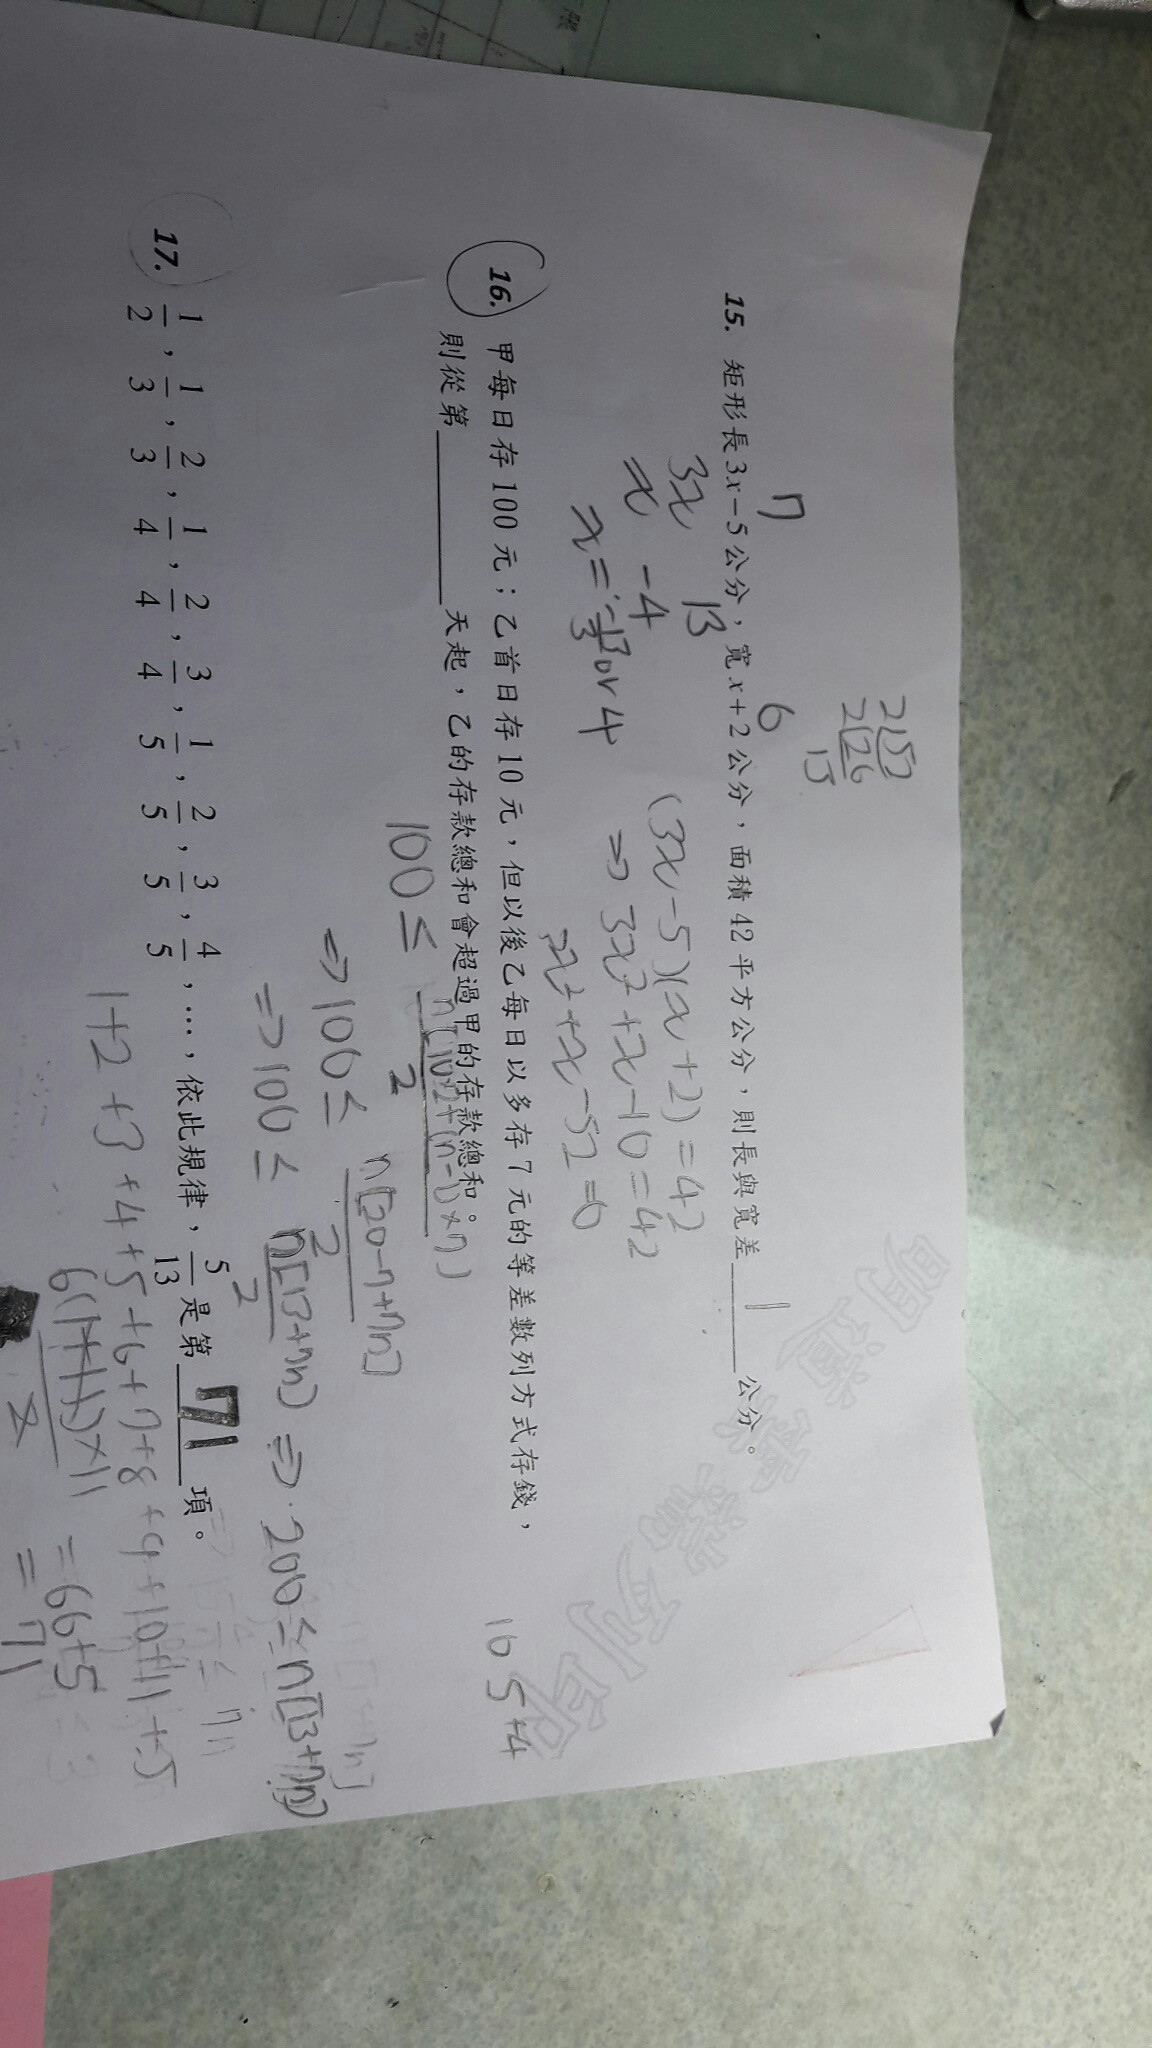 2|52
2|26
13
7
6
15. 矩形長3x-5公分，寬x+2公分，面積42平方公分，則長與寬差 1 公分。
3x 13
=x -4
x=-13/3 or 4
(3x-5)(x+2)=42
⇒ 3x²+x-10=42
3x²+x-52=0
明道
10 5 +4
16. 甲每日存100元；乙首日存10元，但以後乙每日以多存7元的等差數列方式存錢，
則從第______天起，乙的存款總和會超過甲的存款總和。
100≤ n[10×2+(n-1)×7]/2
⇒100≤ n[20-7+7n]/2
⇒100≤ n[13+7n]/2 ⇒ 200≤n[13+7n]
17. 1/2, 1/3, 2/3, 1/4, 2/4, 3/4, 1/5, 2/5, 3/5, 4/5, …，依此規律，5/13是第 71 項。
1+2+3+4+5+6+7+8+9+10+11+5
6(1+11)×11/2 =66+5
=71